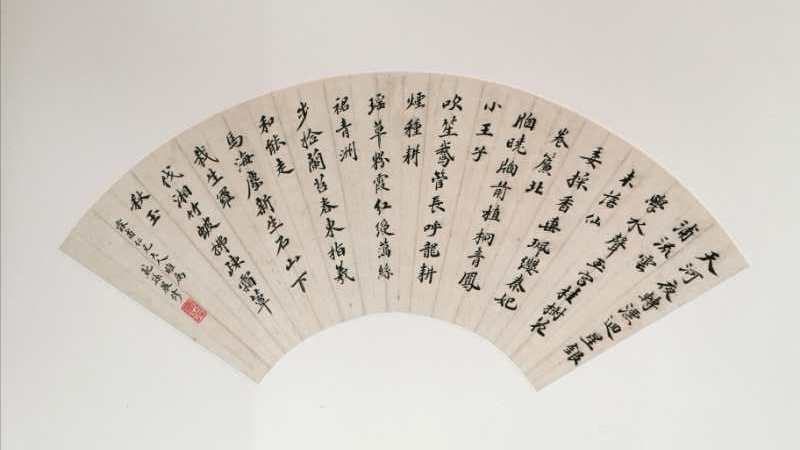 天河夜轉漂迴星銀
浦流雲
學水聲玉宮桂樹花
未落仙
妾採香垂珮纓秦妃
卷簾北
牕曉牕前植桐青鳳
小王子
吹笙鵝管長呼龍耕
煙種耕
瑤草粉霞紅綬藕絲
裙青洲
步拾蘭苕春東指羲
和能走
馬海塵新生石山下
裁生羅
伐湘竹帔拂疎霜簟
秋玉